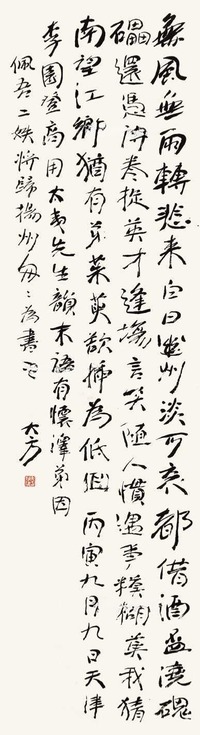 無風無雨轉悲来白日幽州淡可哀都借酒盃澆磈
礧還憑詩卷英才逢場言笑随人慣遇事模糊莫我猜
南望江鄉猶有弟茱萸欲插為低徊 丙寅九月九日天津
李園登高用太夷先生韻末語有懷澤弟因
佩吾二姪將歸揚州匆匆為書之 大方